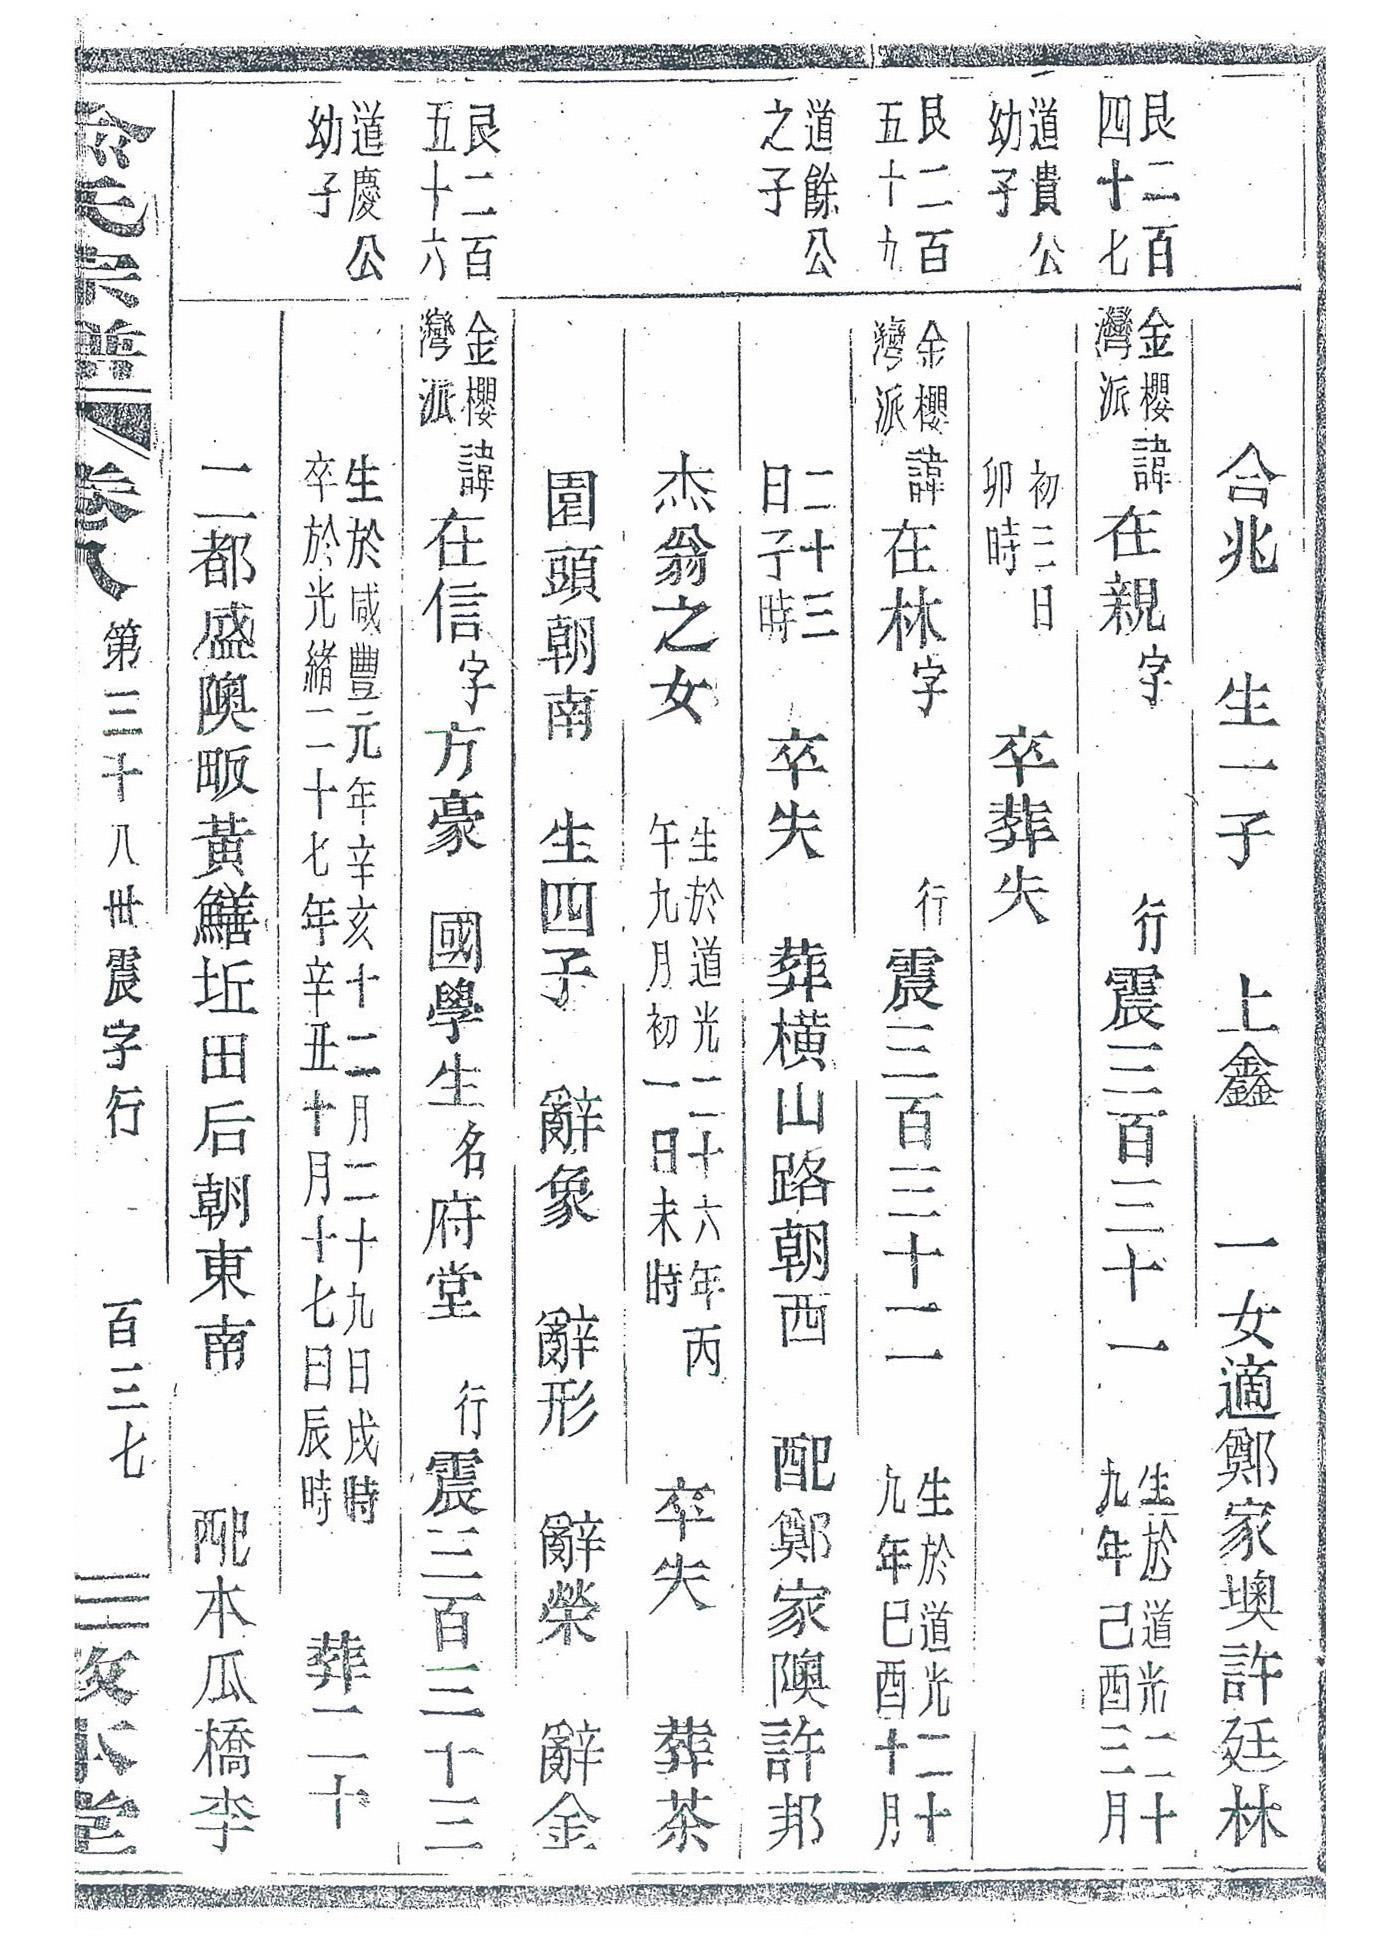 合兆　生一子　上鑫　一女適鄭家墺許廷林
艮二百
四十七
金櫻
灣派
諱在親字　行震三百三十一　生於道光二十
九年己酉三月
道貴公
幼子
初三日
卯時
卒葬失
艮二百
五十九
金櫻
灣派
諱在林字　行震三百三十二　生於道光二十
九年巳酉十月
道餘公
之子
二十三
日子時
卒失　葬橫山路朝西　配鄭家隩許邦
杰翁之女　生於道光二十六年丙
午九月初一日未時
卒失　葬茶
園頭朝南　生四子　辭象　辭形　辭榮　辭金
艮二百
五十六
金櫻
灣派
諱在信字方豪　國學生名府堂　行震三百三十三
道慶公
幼子
生於咸豐元年辛亥十二月二十九日戌時
卒於光緒二十七年辛丑十月十七日辰時
葬二十
二都盛隩畈黃鱔坵田后朝東南　配木瓜橋李
氏宗譜　卷八　第三十八世震字行　百三七　本堂